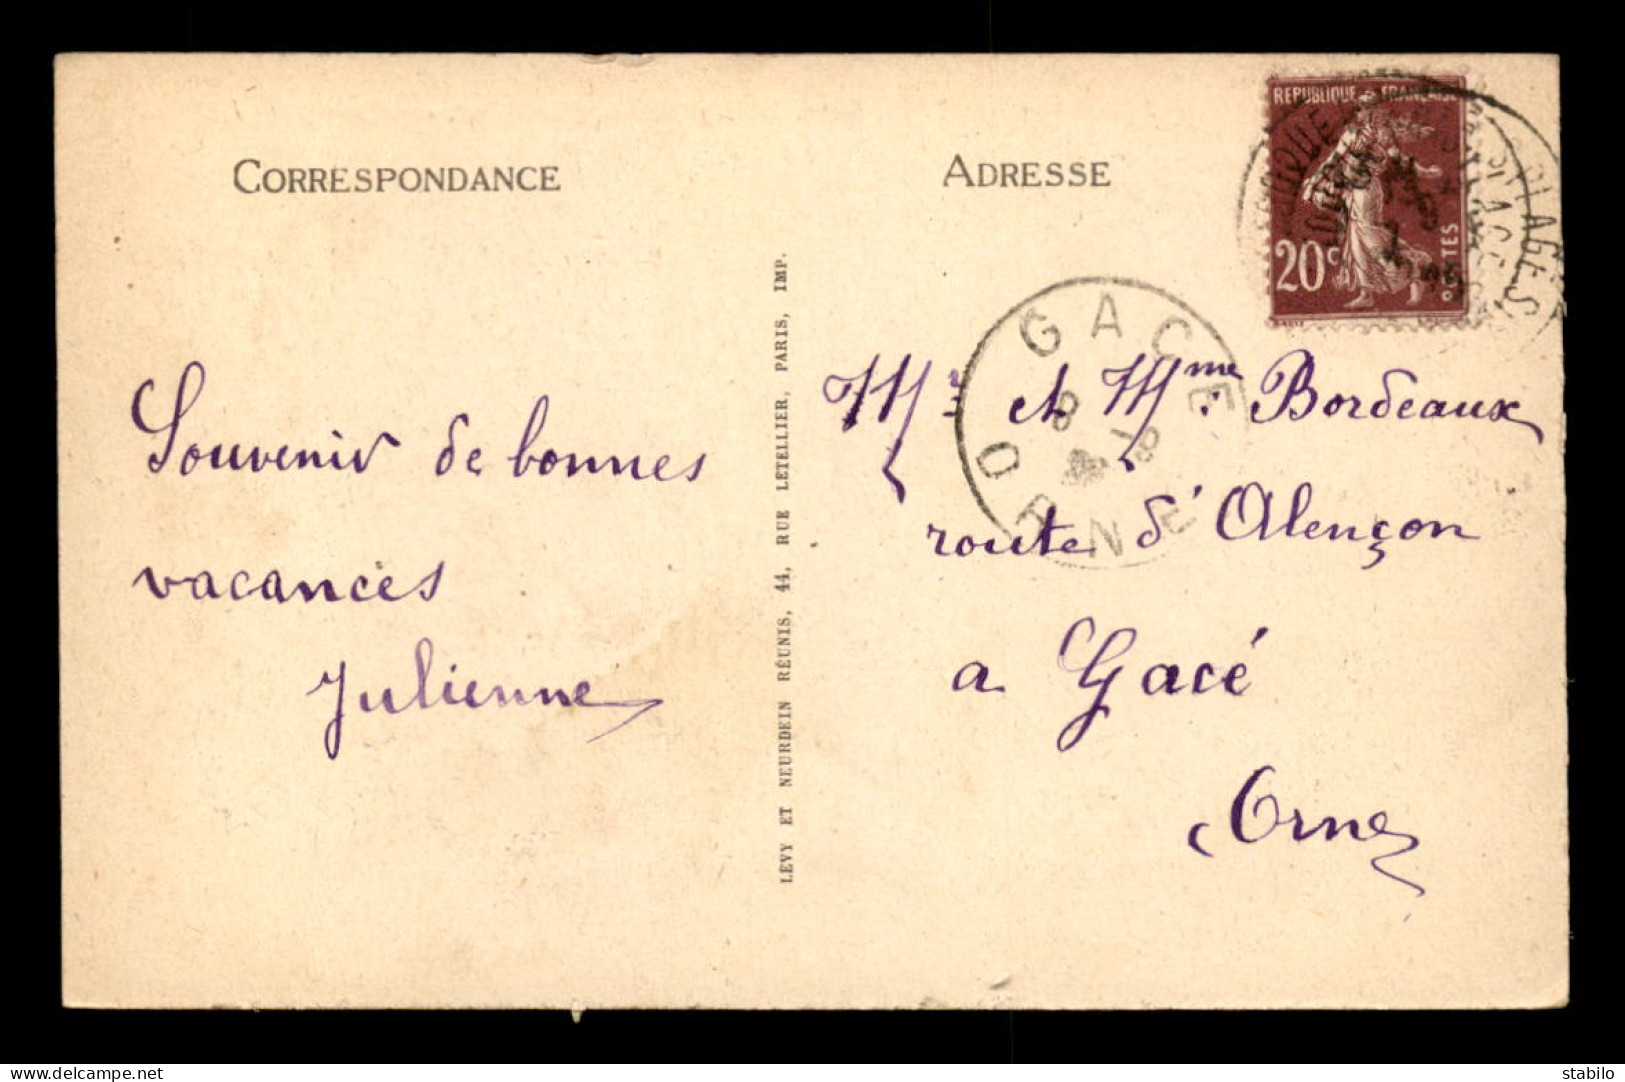 CORRESPONDANCE
ADRESSE
REPUBLIQUE FRANÇAISE
20c
PLAGES
GACE
ORNE
Souvenir de bonnes
vacances
Julienne
LEVY ET NEURDEIN RÉUNIS, 44, RUE LETELLIER, PARIS, IMP.
Mr et Mme Bordeaux
route d'Alençon
a Gacé
Orne
www.delcampe.net
stabilo